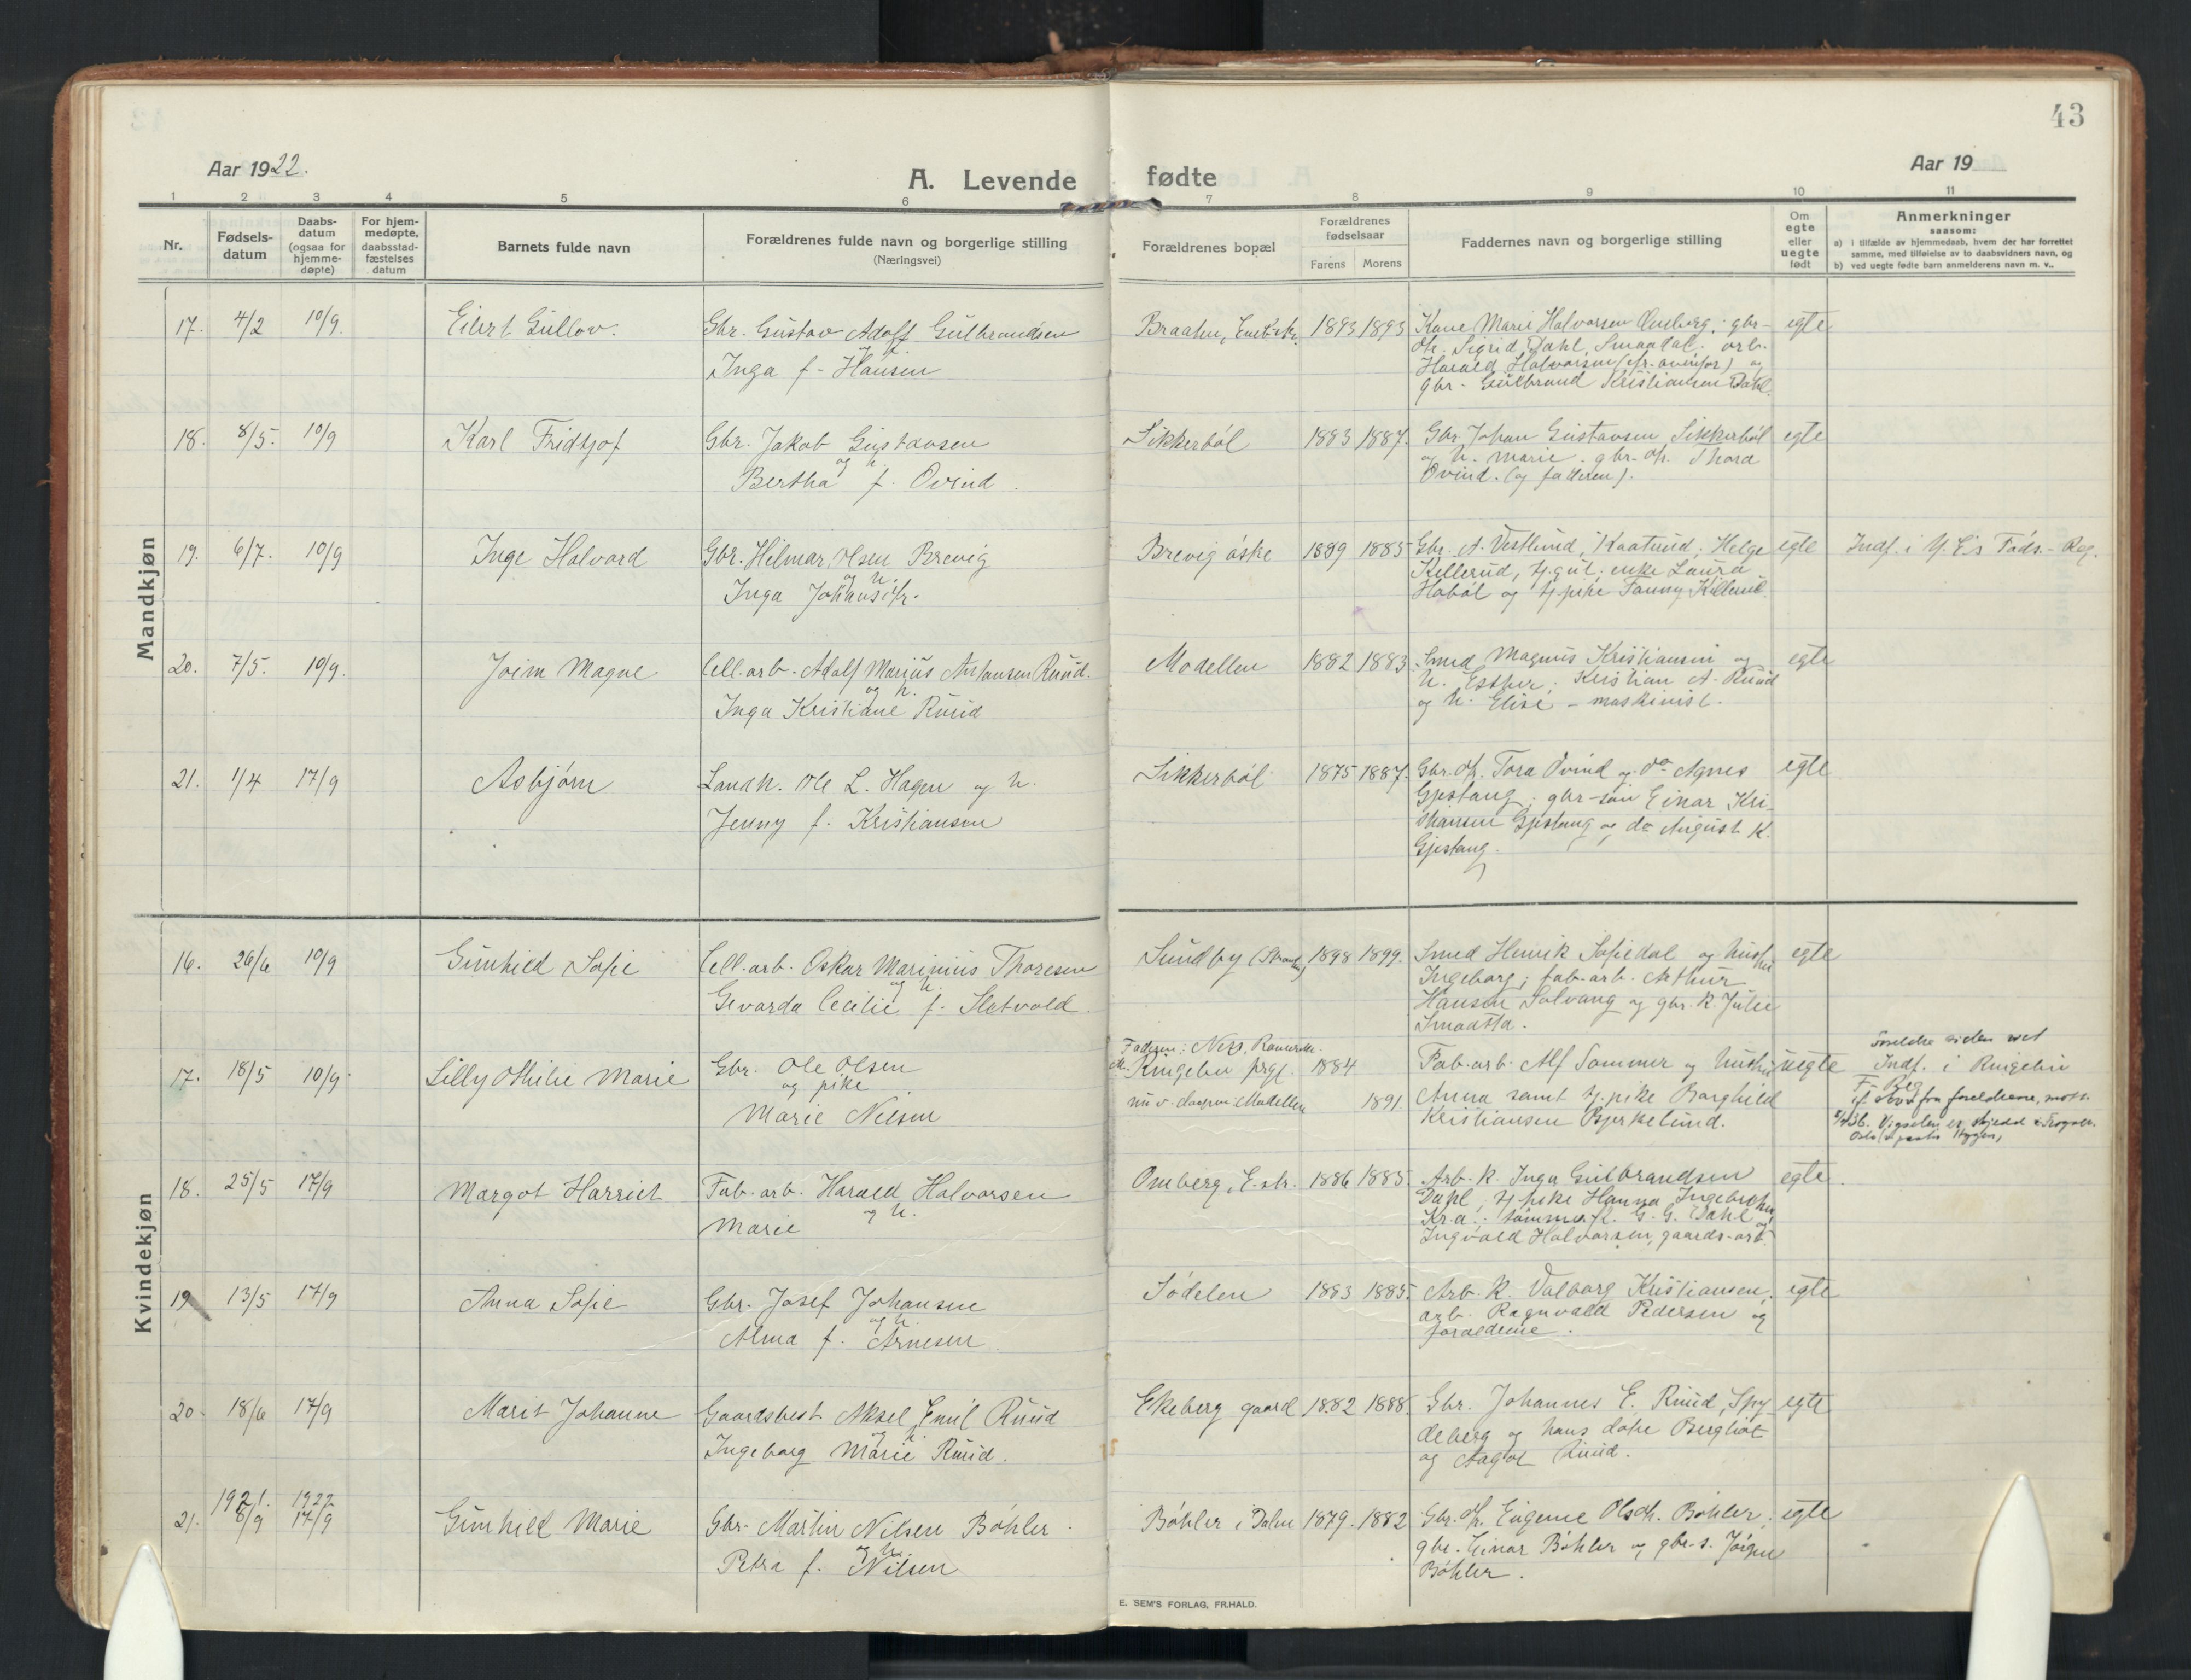 43
Aar 1922.
A. Levende fødte
Aar 19
1 2 3 4 5 6 7 8 9 10 11
Nr.
Fødsels-
datum
Daabs-
datum
(ogsaa for
hjemme-
døpte)
For hjem-
medøpte,
daabsstad-
fæstelses
datum
Barnets fulde navn
Forældrenes fulde navn og borgerlige stilling
(Næringsvei)
Forældrenes bopæl
Forældrenes
fødselsaar
Farens Morens
Faddernes navn og borgerlige stilling
Om
egte
eller
uegte
født
Anmerkninger
saasom:
a) i tilfælde av hjemmedaab, hvem der har forrettet
samme, med tilføielse av to daabsvidners navn, og
b) ved uegte fødte barn anmelderens navn m. v..
Mandkjøn
17. 4/2 10/9. Eilert Gullov.
Gbr. Gustav Adolf Gulbrandsen
og h.
Inga f. Hansen
Braaten, 1893 1893
Kone Marie Halvorsen Omberg; gbr-
dtr. Sigrid Dahl, Smaadal. arb.
Harald Halvorsen (fr. ovenfor) og
gbr. Gulbrand Kristiansen Dahl.
egte
18. 8/5. 10/9 Karl Fridtjof
Gbr. Jakob Gustavsen
og h.
Bertha f. Øvind.
Sikkerbøl 1883 1887.
Gbr. Johan Gustavsen, Sikkerbøl
og h. Marie. gbr. dtr. Thora
Øvind. (og faderen).
egte
19. 6/7. 10/9 Inge Halvard
Gbr. Hilmar Olsen Brevig
og h.
Inga Johansdtr.
Brevig øske 1889 1885
Gbr. A. Vestlund, Kaatund; Helge
Kellerud, tj.gut; enke Laura
Habøl og tj.pike Fanny Killerud.
egte
Indf. i Føds.-Reg.
20. 7/5. 10/9. Joim Magne
Cell.arb. Adolf Marius Anfansen Ruud.
og h.
Inga Kristiane Ruud
Modellen 1882 1883
Smed Magnus Kristiansen og
h. Esther; Kristian A. Ruud
og h. Elise - maskinist.
egte
21. 1/4 17/9 Asbjørn
Landh. Ole L. Hagen og h.
Jenny f. Kristiansen
Sikkerbøl 1875 1887.
Gbr. dtr. Tora Øvind og do Agnes
Gjestang; gbr-søn Einar Kri-
stiansen Gjestang og do August K.
Gjestang.
egte
Kvindekjøn
16. 26/6 10/9 Gunhild Sofie
Cell.arb. Oskar Marinius Thoresen
og h.
Gevarda Cecilie f. Sletvold.
Sundby 1898 1899.
Smed Henrik Sofiedal og hustru
Ingeborg; fab.arb. Arthur
Hansen Solvang og gbr. k. Julie
Smaatta.
egte
17. 18/5 10/9. Lilly Othilie Marie
Gbr. Ole Olsen
og pike
Marie Nilsen
Faderen: Nes, Romerike.
M. Ringebu prgj. 1884
nu v. Modellen 1891
Fab.arb. Alf Sommer og hustru
Anna samt tj.pike Borghild
Kristiansen Bjerkelund.
uegte
Foreldre siden viet
Indf. i Ringebu
F. Reg.
if. fra foreldrene, mott.
Vigselen er skjedd i Frogner.
18. 25/5 17/9 Margot Harriet
Fab.arb. Harald Halvorsen
og h.
Marie
Omberg, E.str. 1886 1885
Arb. k. Inga Gulbrandsen
Dahl; tj.pike Hanna Ingebretsen,
Kr.a.; tømmerk. G. G. Dahl og
Ingvald Halvorsen, gaards-arb.
egte.
19 13/5 17/9 Anna Sofie
Gbr. Josef Johansen
og h.
Alma f. Arnesen.
Sødelen 1883 1885.
Arb. k. Valborg Kristiansen;
arb. Ragnvald Pedersen og
foraeldrene.
egte
20. 18/6 17/9 Marit Johanne
Gaardsbest. Aksel Emil Ruud
og h.
Ingeborg Marie Ruud.
Ekeberg gaard 1882 1888.
Gbr. Johannes E. Ruud, Spy-
deberg og hans døtre Bergliot
og Aagot Ruud.
egte
1921. 1922
21. 8/9 17/9 Gunhild Marie
Gbr. Martin Nilsen Bøhler.
og h.
Petra f. Nilsen
Bøhler i Dalen 1879. 1882
Gbr. dtr. Eugenie Olsdtr. Bøhler;
gbr. Einar Bøhler og gbr-s. Jørgen
Bøhler.
egte
E. SEM'S FORLAG, FR.HALD.